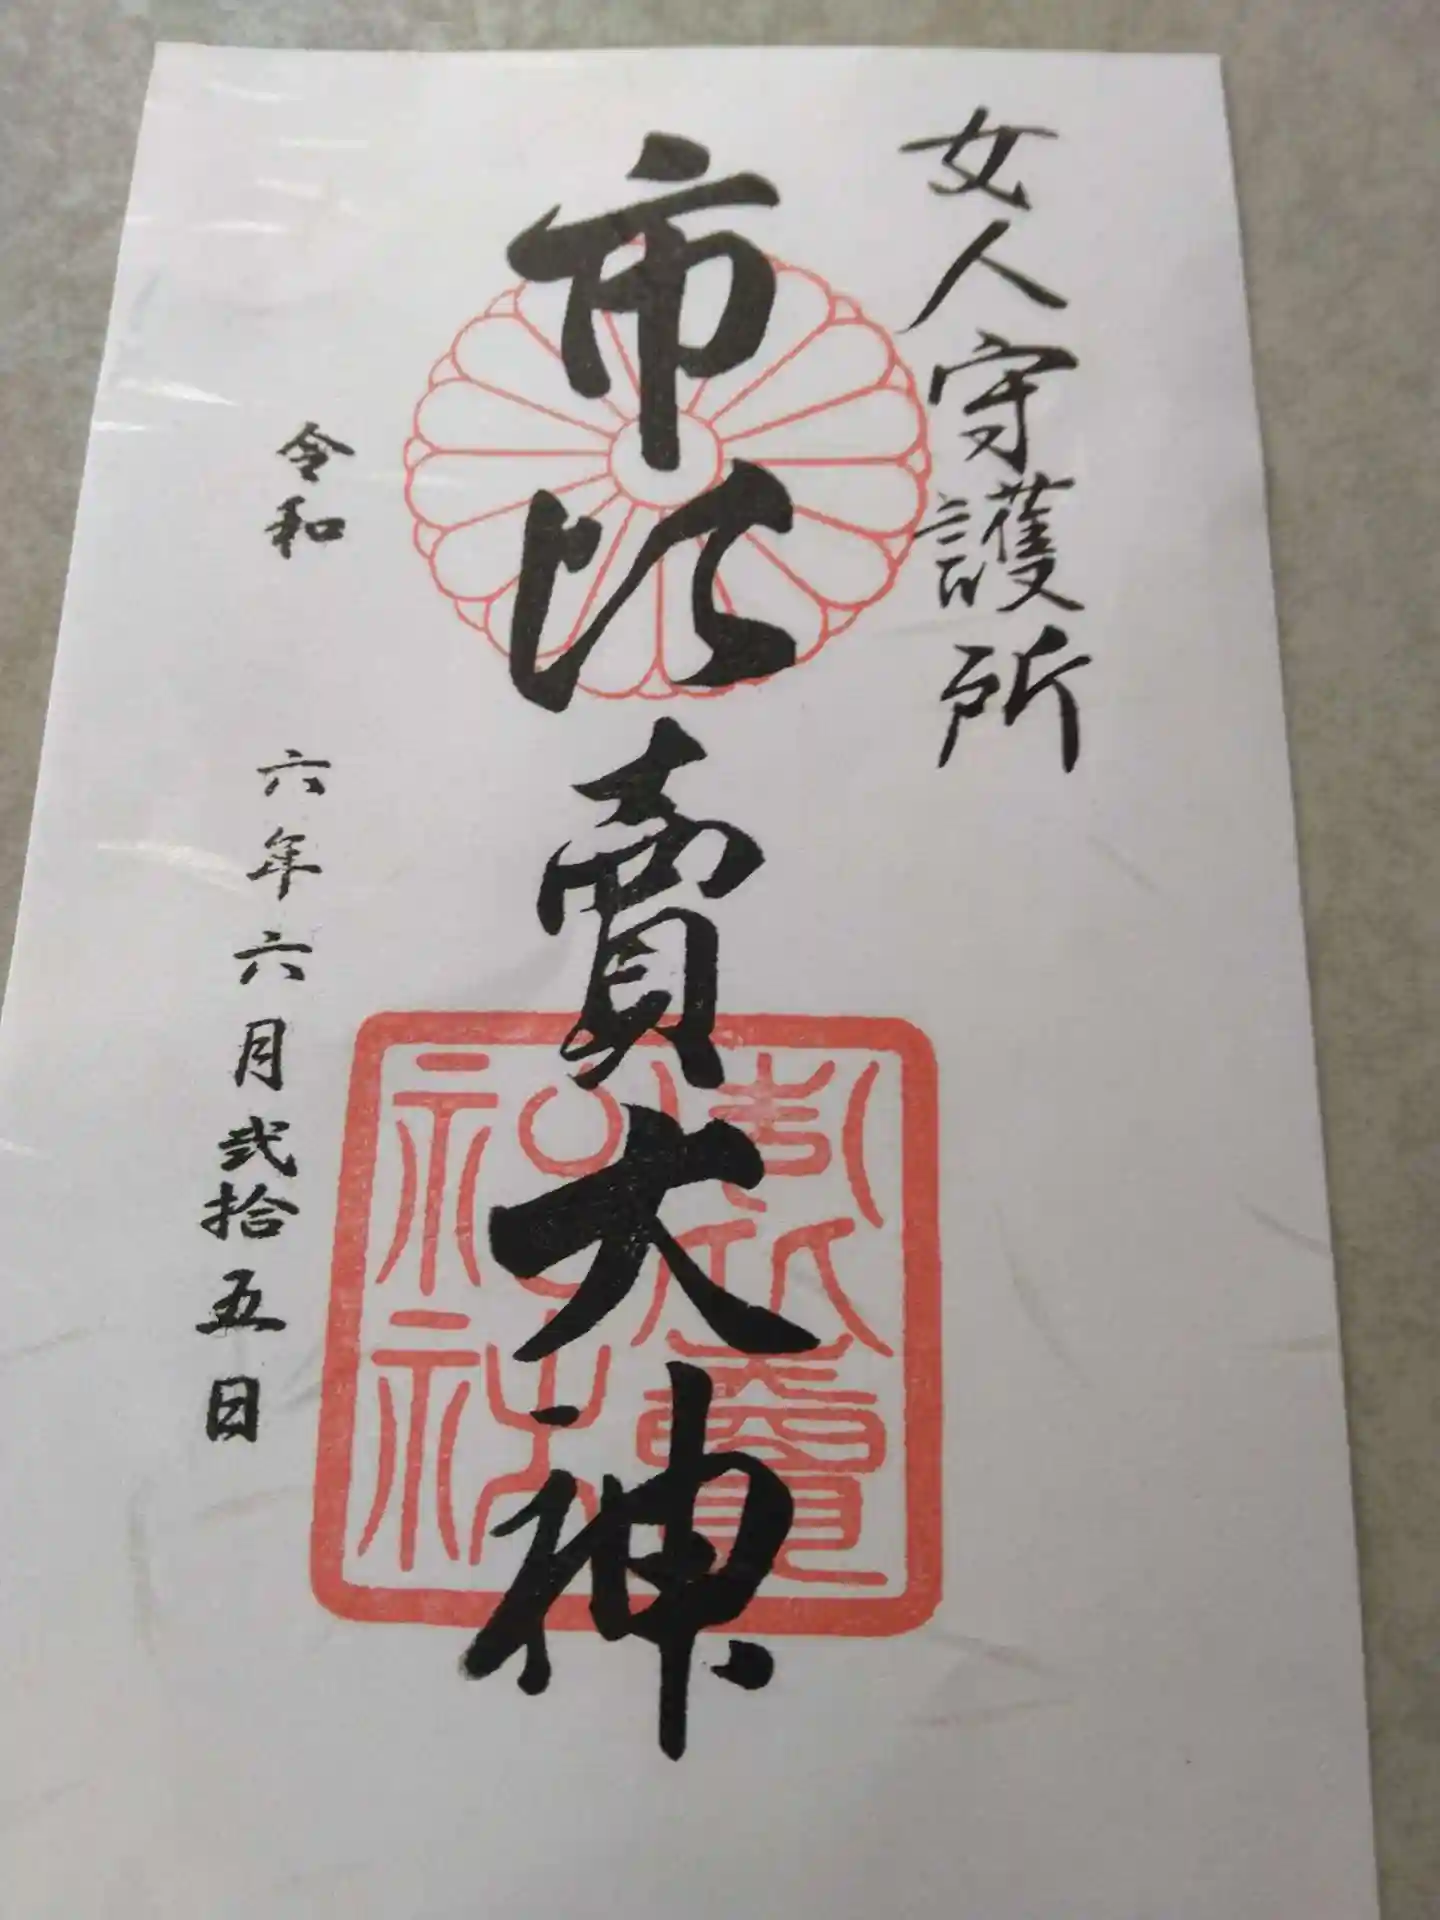 女人守護所
市比賣大神
令和六年六月弐拾五日